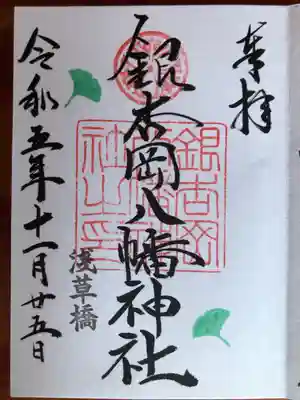 奉拝
銀杏岡八幡神社
銀杏岡
社之印
浅草橋
令和五年十一月廿五日